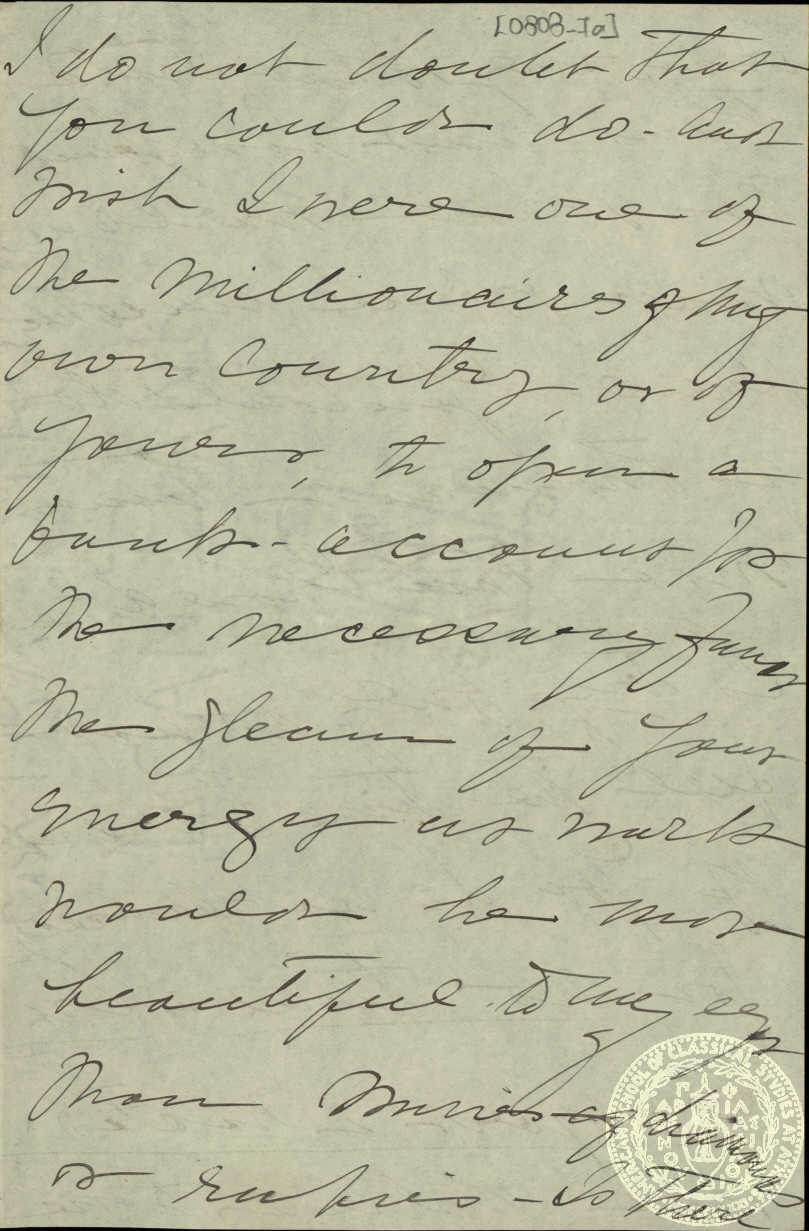 [0808-Ia]
I do not doubt that
you could do - And
wish I were one of
the Millionaires of my
own Country, or of
yours, to open a
bank - account for
the necessary funds
The gleam of your
energy at work
would be more
beautiful to my eyes
than mines of diamonds
or rubies - Is there
AMERICAN SCHOOL OF CLASSICAL STUDIES AT ATHENS